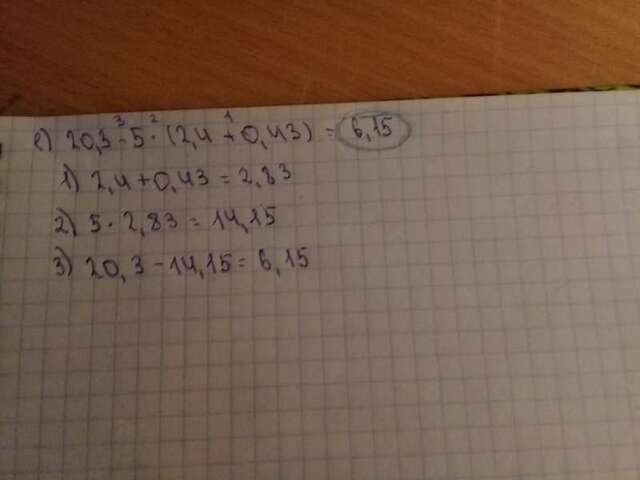 e) 20,3 - 5 · (2,4 + 0,43) = 6,15
1) 2,4 + 0,43 = 2,83
2) 5 · 2,83 = 14,15
3) 20,3 - 14,15 = 6,15